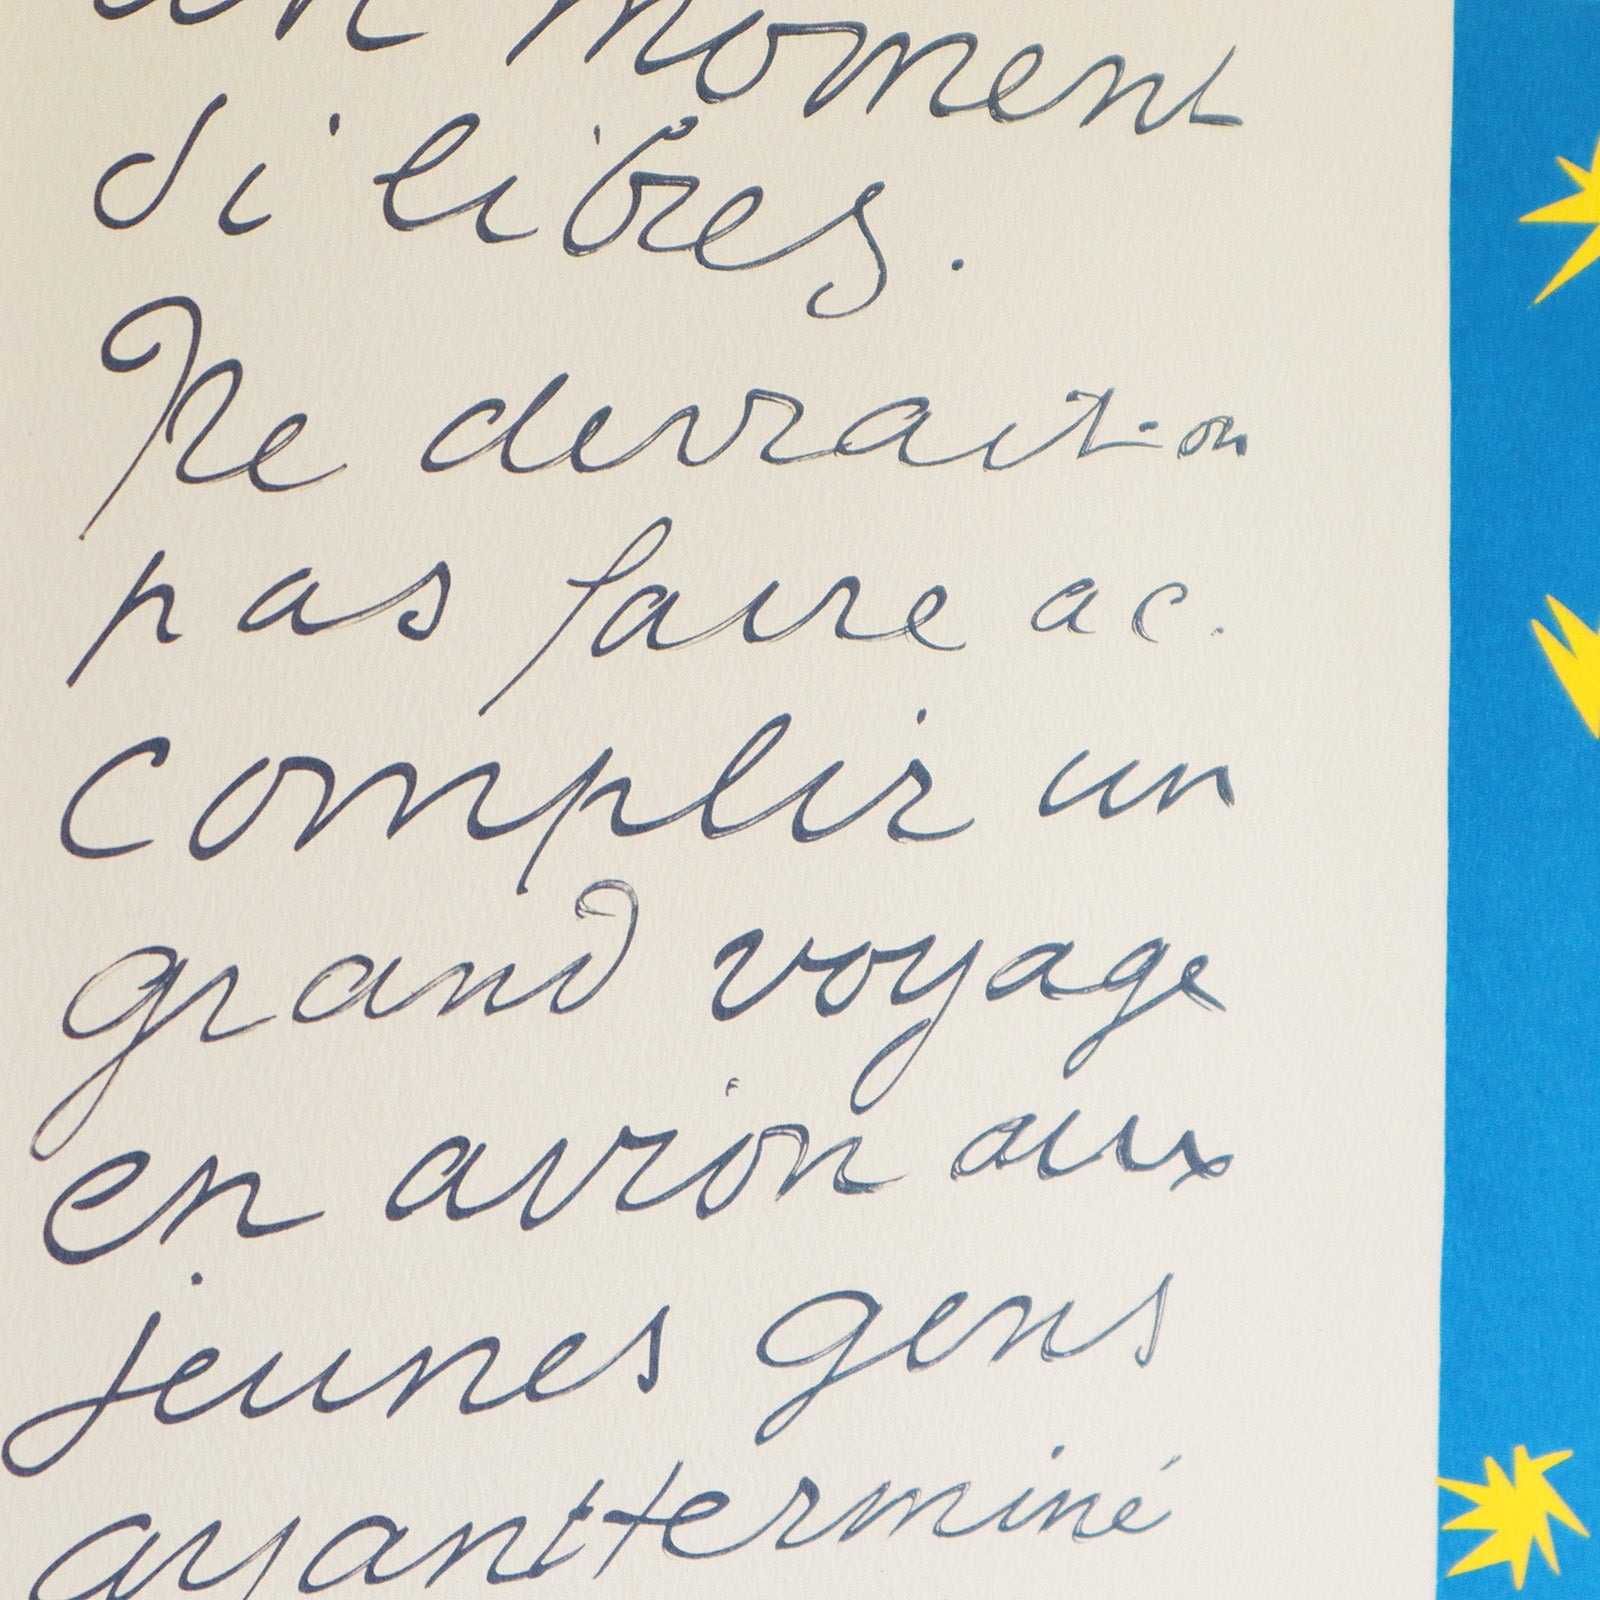 un moment
si libres.
Ne devrait-on
pas faire ac-
complir un
grand voyage
en avion aux
jeunes gens
ayant terminé